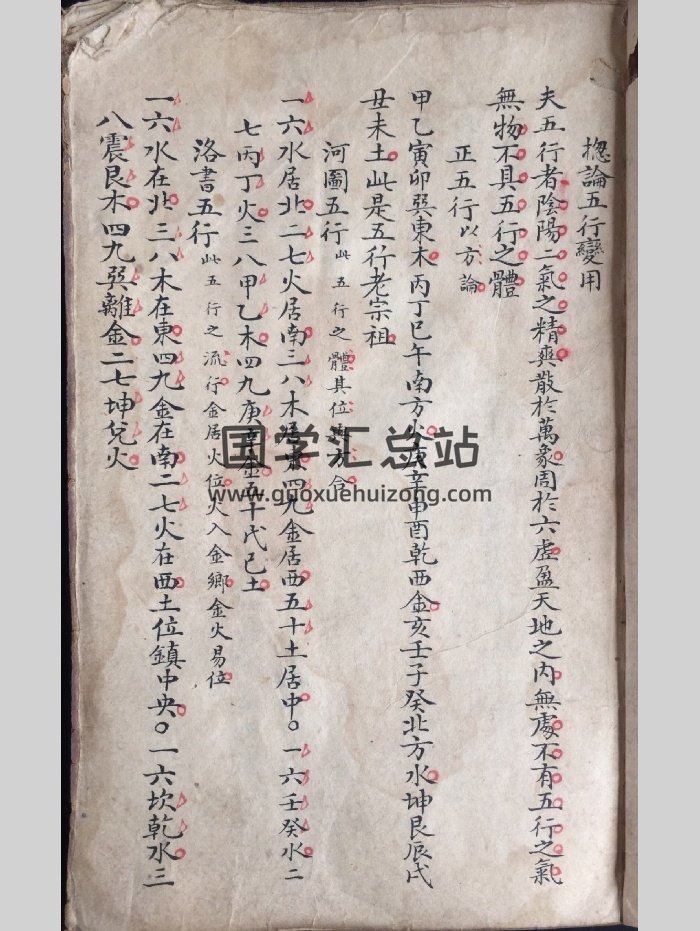 揔論五行變用
夫五行者陰陽二氣之精爽散於萬彖周於六虛盈天地之内無處不有五行之氣
無物不具五行之體
正五行以方論
甲乙寅卯巽東木丙丁巳午南方火庚辛申酉乾西金亥壬子癸北方水坤艮辰戌
丑未土此是五行老宗祖
河圖五行此五行之體其位與方合
一六水居北二七火居南三八木居東四九金居西五十土居中○一六壬癸水二
七丙丁火三八甲乙木四九庚辛金五十戊己土
洛書五行此五行之流行金居火位火入金鄉金火易位
一六水在北三八木在東四九金在南二七火在西土位鎮中央○一六坎乾水三
八震艮木四九巽離金二七坤兌火
国学汇总站
www.guoxuehuizong.com